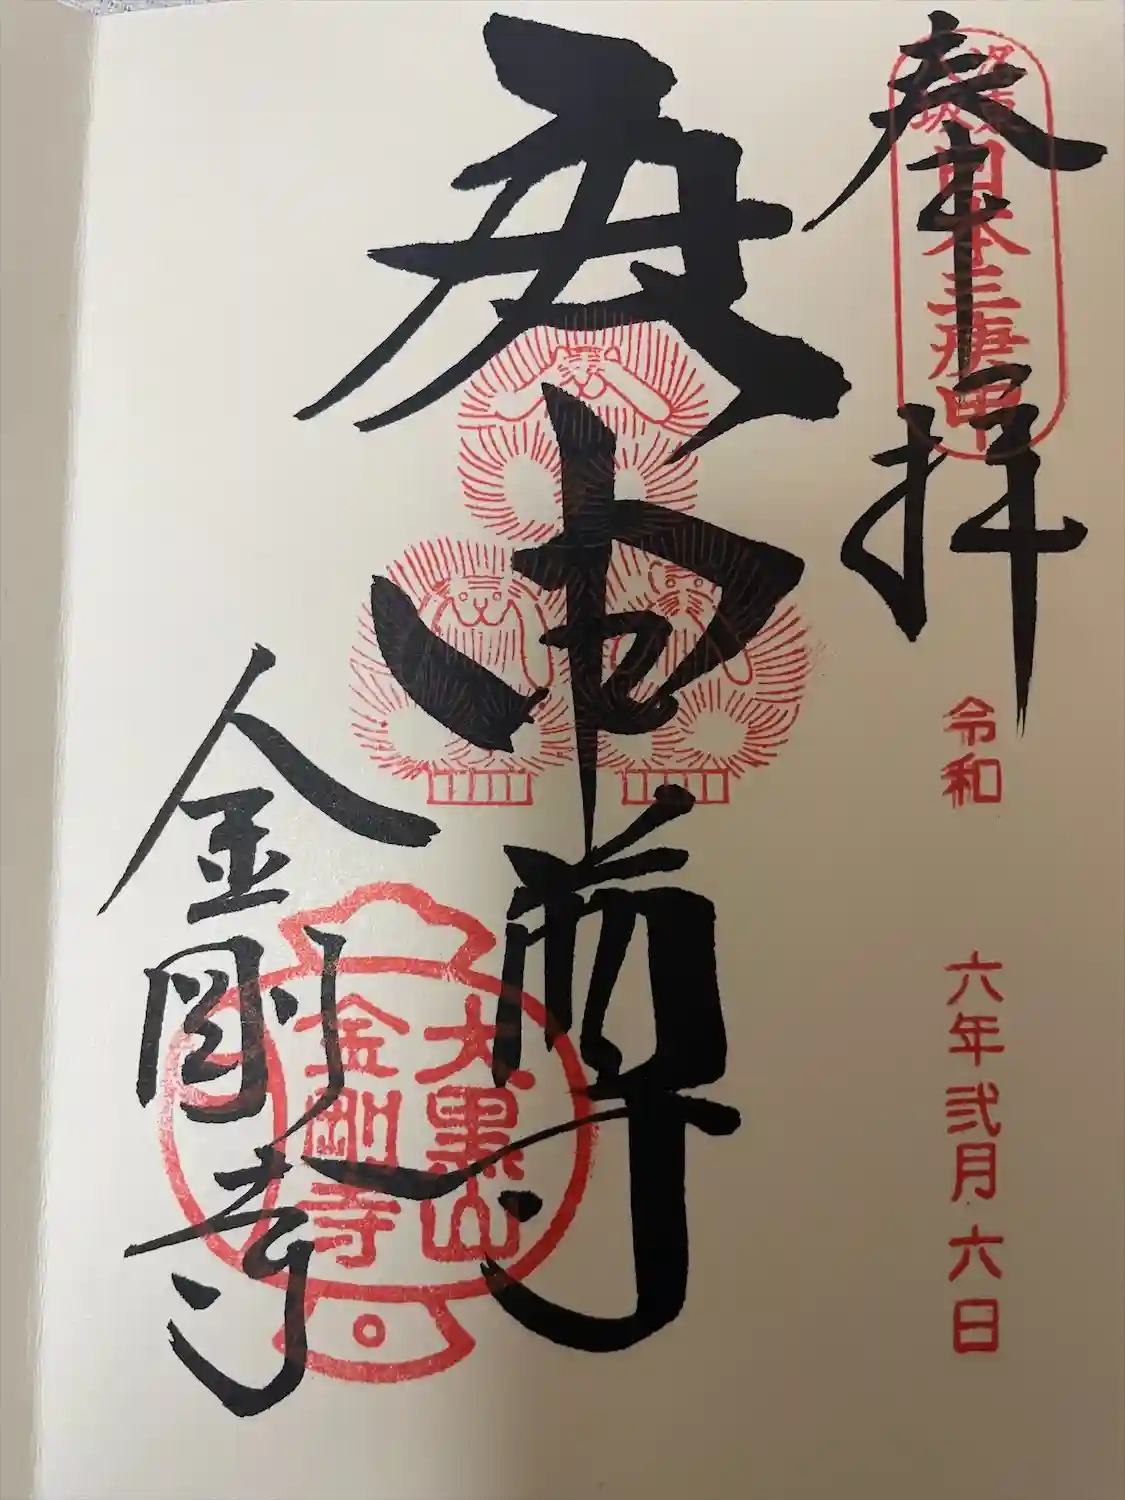 奉拝
洛東
八坂
日本三庚申
令和 六年弐月六日
庚申尊
大黒山
金剛寺
金剛寺